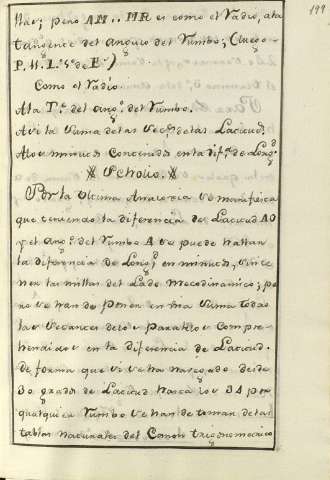 199
Nav; pero AM..MR es como el Radio, ala
tangente del angulo del Rumbo; (Luego-
Como el Radio
Ala T.e del ang.o del Rumbo.
Asi la Suma delas Sec.s delas Latitud.
Alos minutos Contenidos en la dif.a de Long.d
Scholio.
Por la Ultima Analogia se manifiesta
que teniendo la diferencia de Latitud AO
y el Ang.o del Rumbo A se puede hallar
la diferencia de Long.d en minutos, sin te
ner las millas del Lado Mecodinamico; pe
ro se han de poner en una Suma todas
las Secantes delos Paralelos Compre
hendidos en la diferencia de Latitud.
de forma que si se ha navegado desde
30 grados de Latitud hasta los 34 por
qualquiera Rumbo se han de tomar delas
tablas naturales del Canon trigonometrico